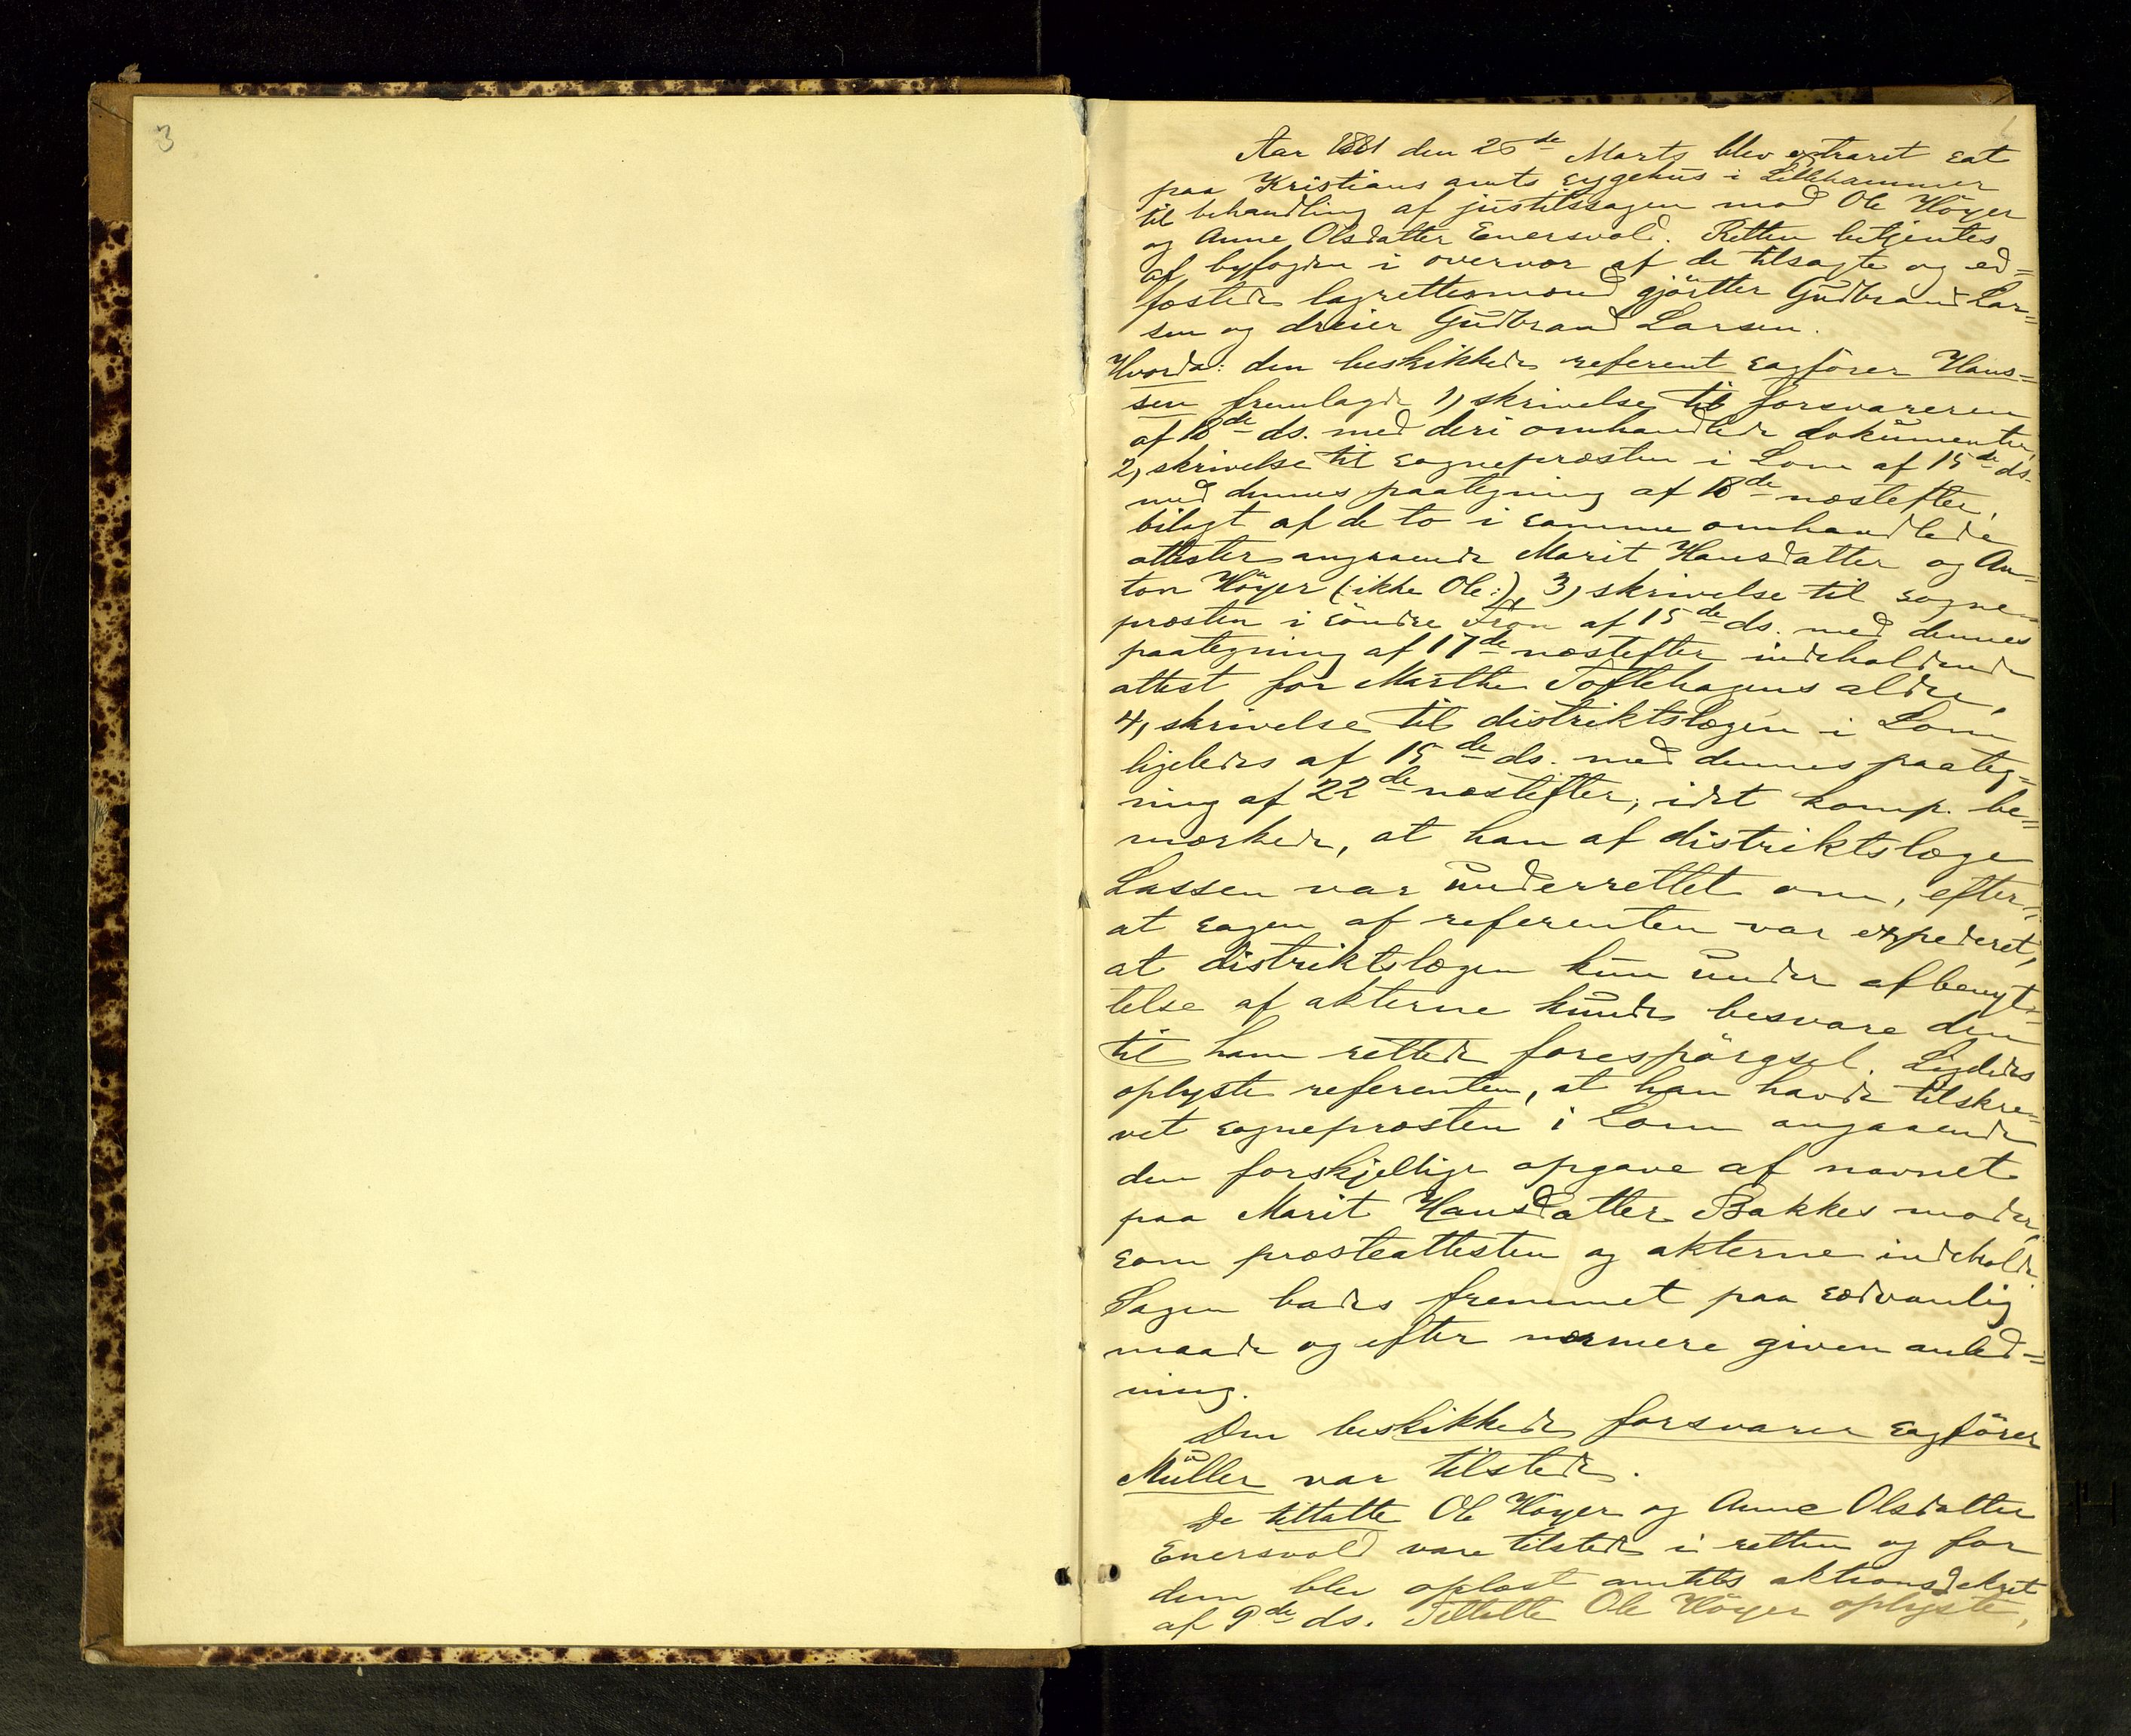 3
1
Aar 1881 den 26de Marts blev extraret sat
paa Kristians amts sygehus i Lillehammer
til behandling af justitssagen mod Ole Höyer
og Anne Olsdatter Enersvold. Retten betjentes
af byfogden i overvær af de tilsagte og ed=
fæstede lagrettesmænd gjörtler Gudbrand Lar=
sen og dreier Gudbrand Larsen.
Hvorda: den beskikkede referent sagförer Hans=
sen fremlagde 1, skrivelse til forsvareren
af 18de ds. med deri omhandlede dokumenter,
2, skrivelse til sognepræsten i Lom af 15de ds.
med dennes paategning af 18de næstefter,
bilagt af de to i samme omhandlede
attester angaaende Marit Hansdatter og An=
ton Höyer (:ikke Ole:), 3, skrivelse til sogne=
præsten i söndre Fron af 15de ds. med dennes
paategning af 17de næstefter indeholdende
attest for Marthe Toftehagens alder,
4, skrivelse til distriktslægen i Lom
ligeledes af 15de ds. med dennes paateg=
ning af 22de næstefter, idet komp. be=
mærkede, at han af distriktslæge
Lassen var underrettet om, efter=
at sagen af referenten var expederet,
at distriktslægen kun under afbenyt=
telse af akterne kunde besvare den
til ham rettede forespörgsel. Ligeledes
oplyste referenten, at han havde tilskre=
vet sognepræsten i Lom angaaende
den forskjellige opgave af navnet
paa Marit Hansdatter Bakkes moder,
som præsteattesten og akterne indeholde.
Sagen bades fremmet paa sædvanlig
maade og efter nærmere given anled=
ning.
Den beskikkede forsvarer sagförer
Müller var tilstede.
De tiltalte Ole Höyer og Anne Olsdatter
Enersvold vare tilstede i retten og for
dem blev oplæst amtets aktionsdekret
af 9de ds. Tiltalte Ole Höyer oplyste,